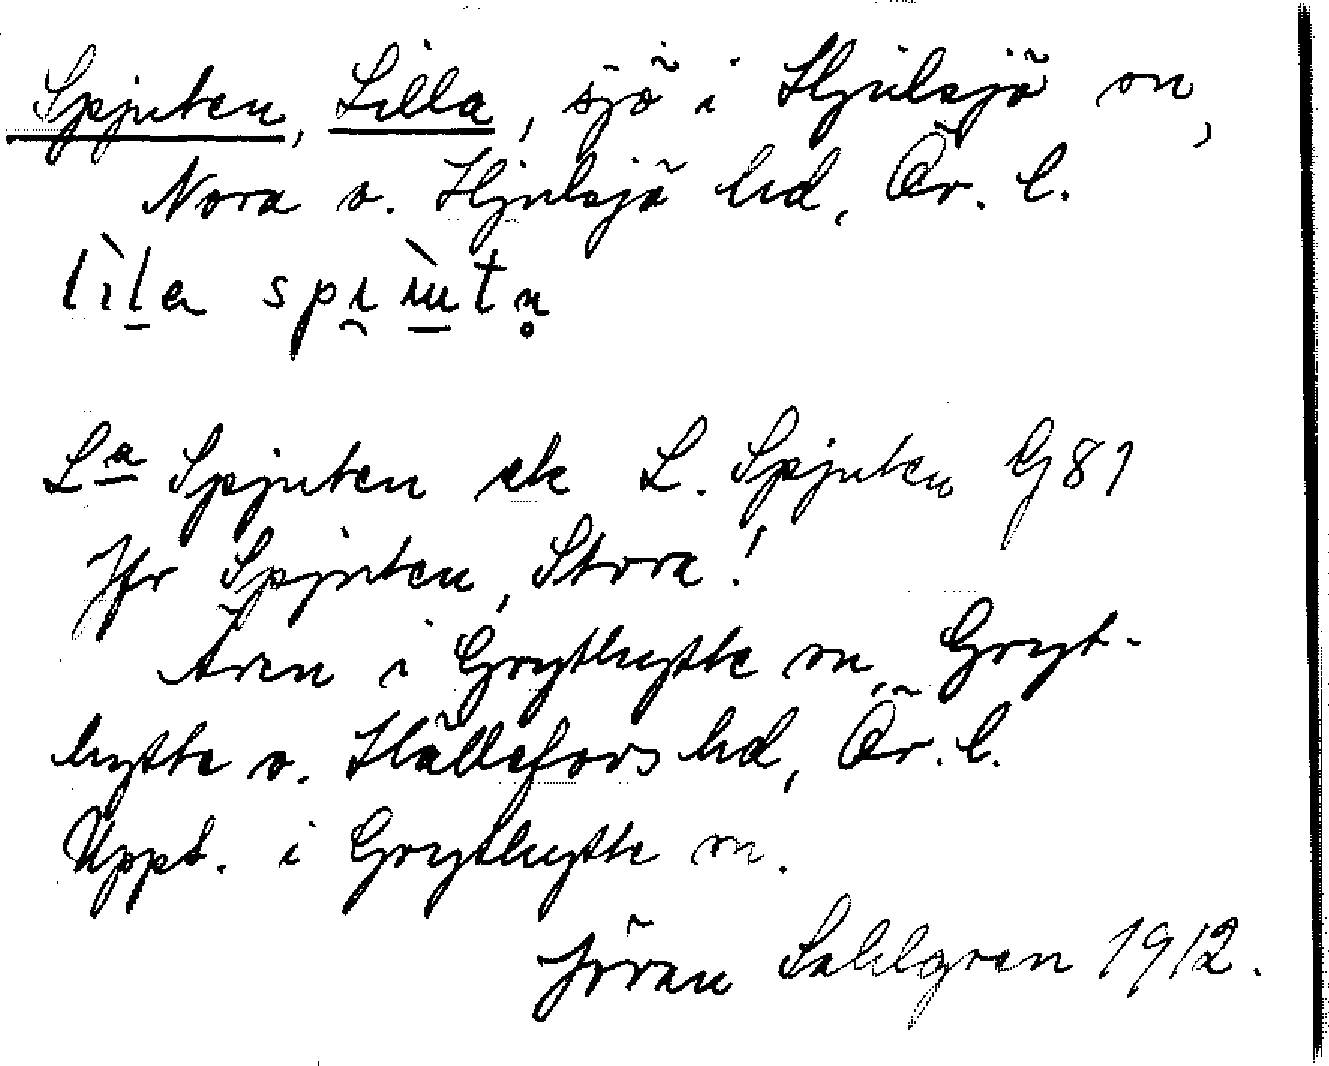 Spjuten, Lilla, sjö i Hjulsjö sn,
Nora o. Hjulsjö hd, Ör. l.
lìla spi̯ùtn̥
La Spjuten ek L. Spjuten G81
Jfr Spjuten, Stora!
Även i Grythytte sn, Gryt-
hytte o. Hällefors hd, Ör. l.
Uppt. i Grythytte sn.
Jöran Sahlgren 1912.